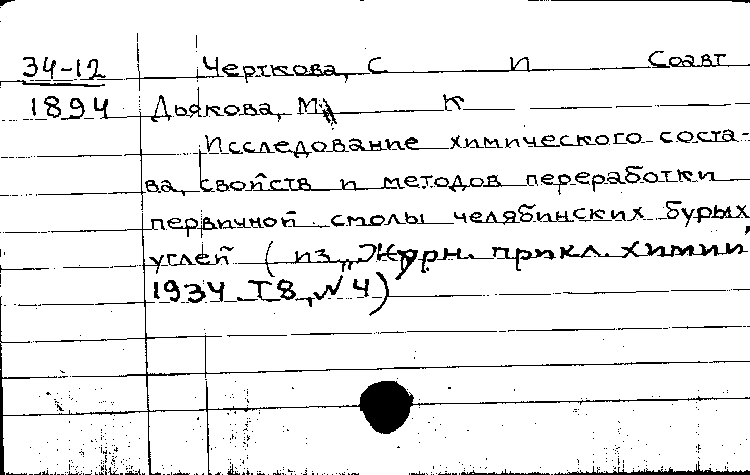 34-12 Черткова, С И Соавт
1894 Дьякова, М К
Исследование химического соста-
ва, свойств и методов переработки
первичной смолы челябинских бурых
углей (из „Журн. прикл. химии"
1934. T 8, № 4)